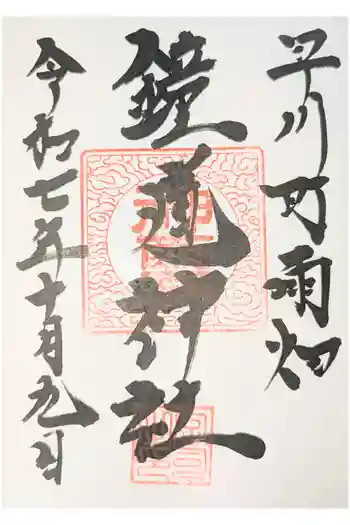 早川町雨畑
神社
令和七年十月九日